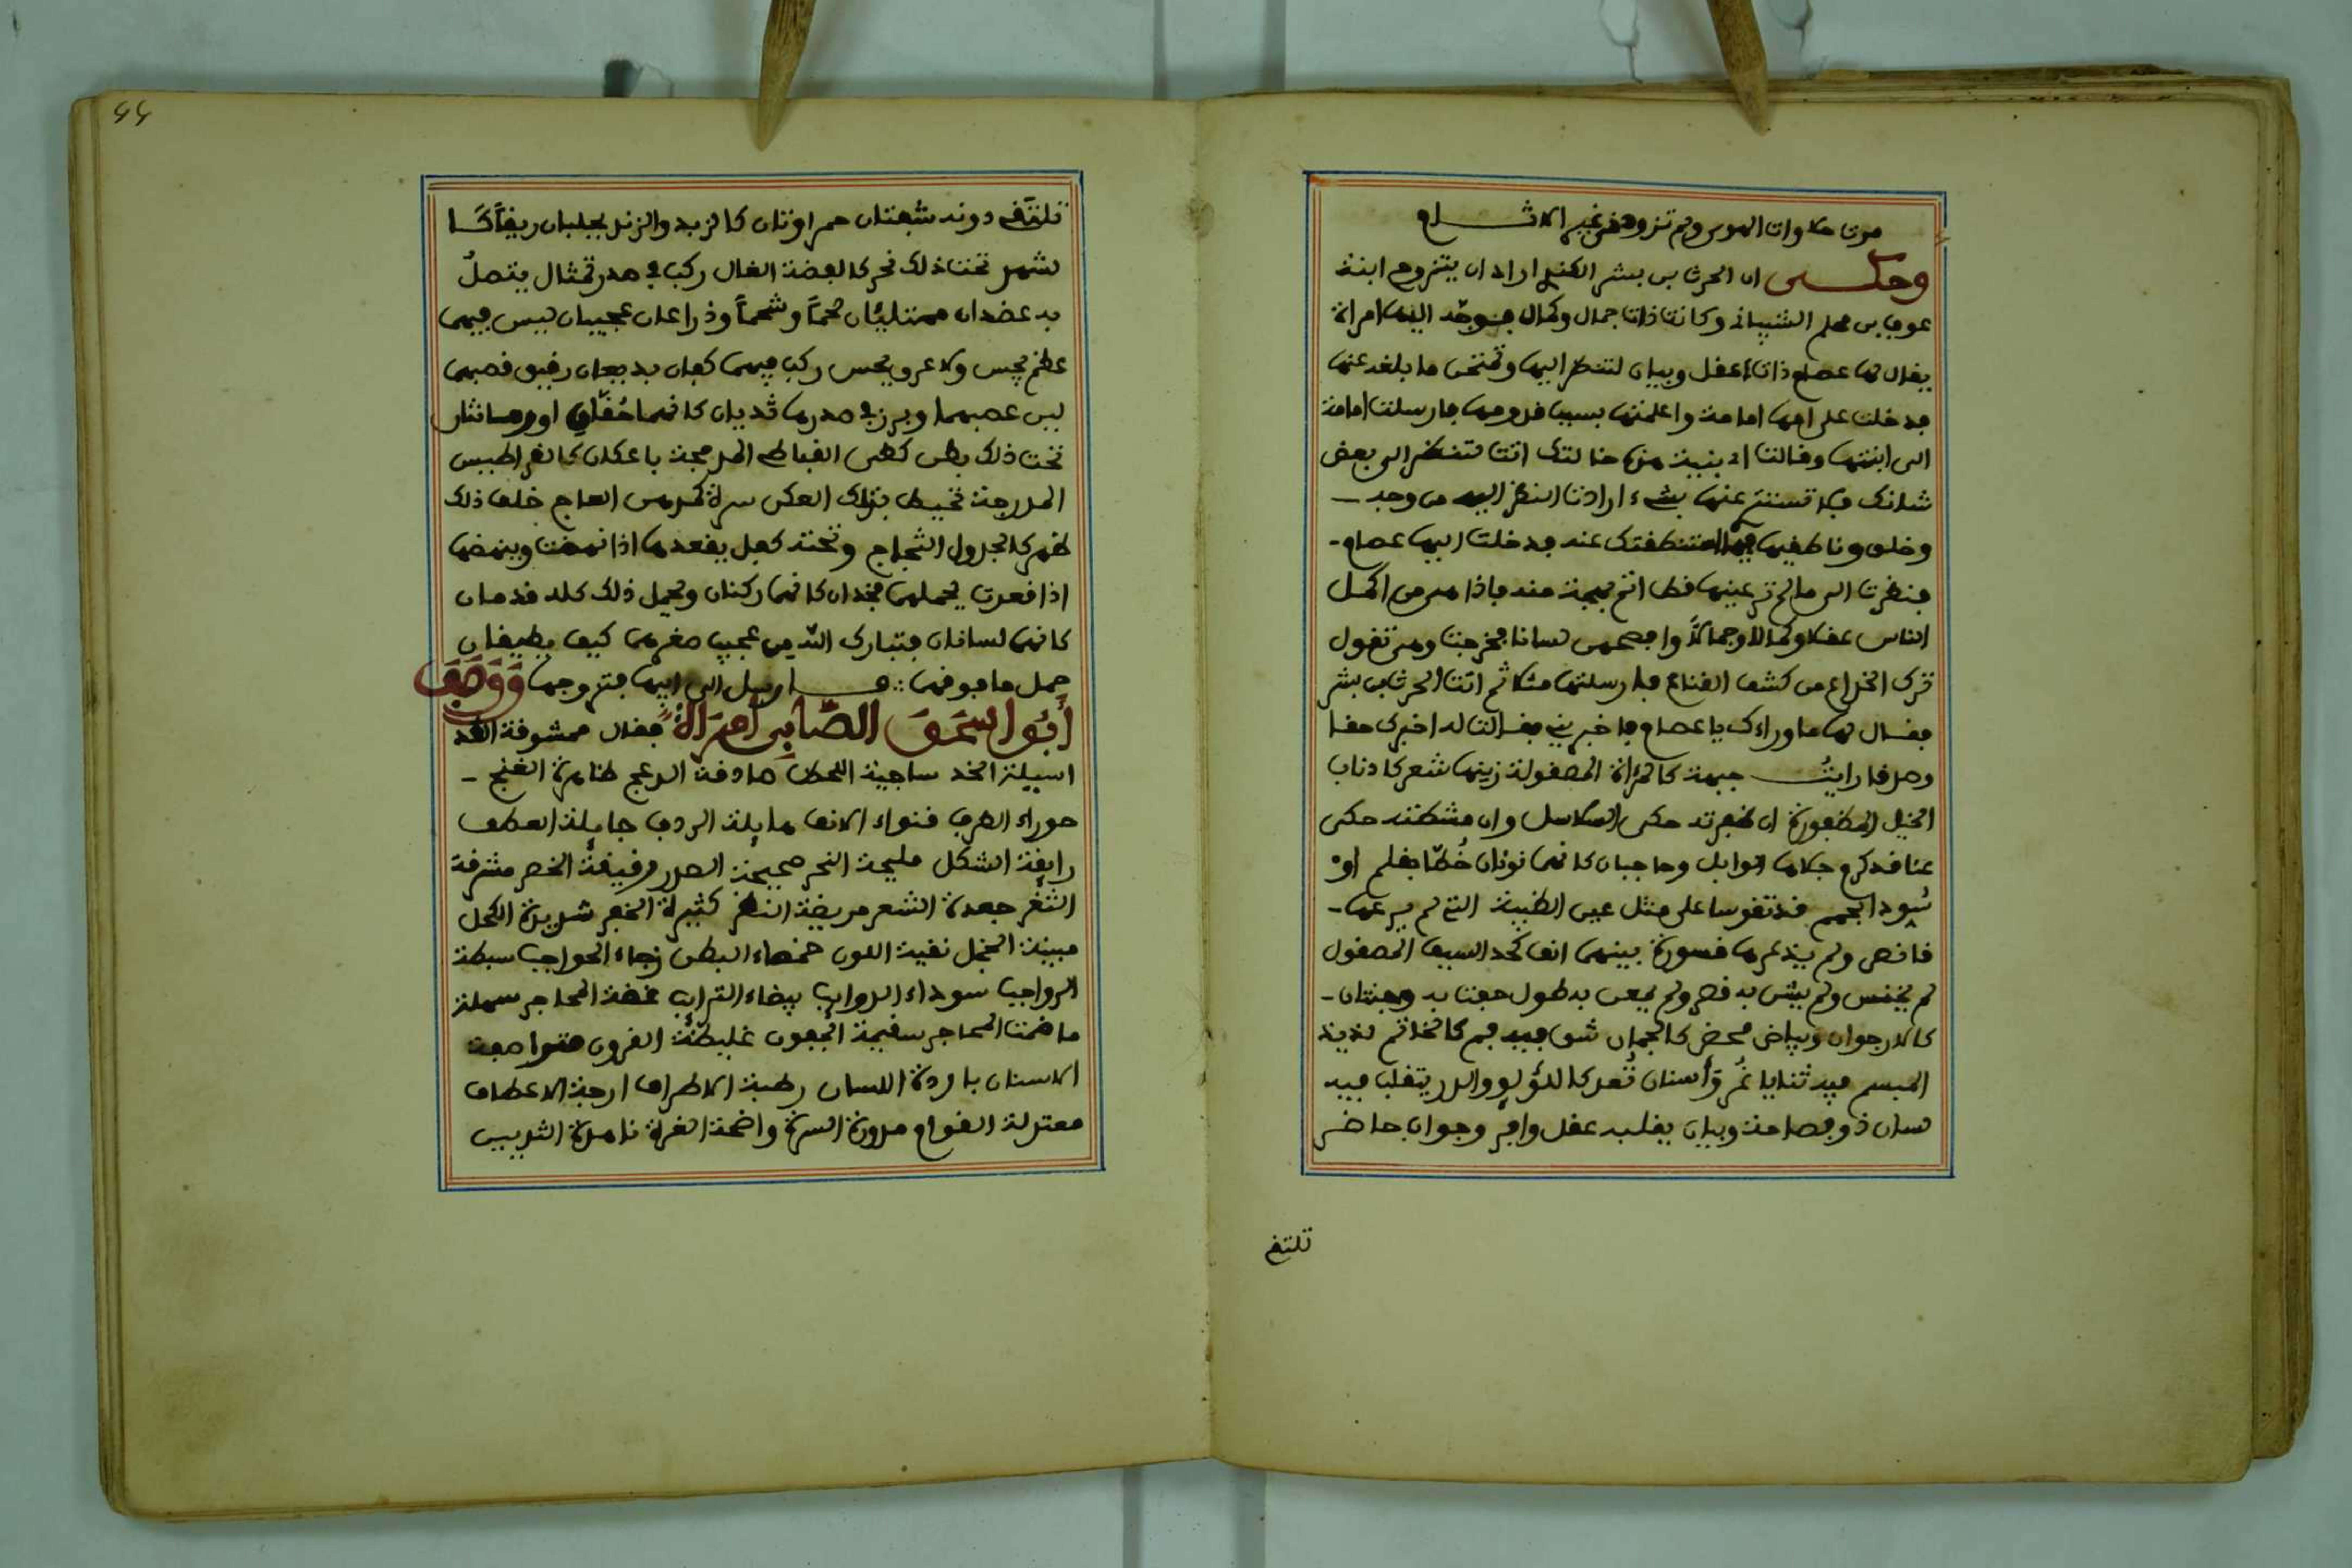 موت حلاوات الهوى ولم تزوهن غير الاثام
وحكى ان الحرث بن بشر الكندي اراد ان يتزوج ابنة
عوف بن محلم الشيباني وكانت ذات جمال وكمال فوجّه اليها امراة
يقال لها عصام ذات عقل وبيان لتنظر اليها وتمتحن ما بلغه عنها
فدخلت على امها امامة واعلمتها بسبب قدومها فارسلت امامة
الى ابنتها وقالت اي بنية هذه خالتك اتت لتنظر الى بعض
شانك فلا تستتري عنها بشيء ارادت النظر اليه من وجه
وخلق وناطقيها فيما استنطقتك عنه فدخلت اليها عصام
فنظرت الى ما لم تر عينها قط اتم بهجة منه فاذا هي من اكمل
الناس عقلا وكمالا وجمالاً وافصحهم لسانا فخرجت وهي تقول
ترك الخداع من كشف القناع فارسلتها مثلا ثم اتت الحرث بن بشر
فقال لها ما وراءك يا عصام فاخبريني فقالت له اخبرك حقا
وصدقا رايتُ جبهة كالمرءاة المصقولة زينها شعر كاذناب
الخيل المظفورة ان ظفرته حكى السلاسل وان مشطته حكى
عناقد كرم جلاها الوابل وحاجبان كانهما نونان خُطّا بقلم او
سُودا بحمم قد تقوسا على مثل عين الظبية التي لم يرعها
قانص ولم يذعرها قسورة بينهما انف كحد السيف المصقول
لم يخنس ولم يشن به قصر ولم يمعن به طول حفت به وجنتان
كالارجوان وبياض محض كالجمان شق فيه فم كالخاتم لذيذ
المبسم فيه ثنايا غُر وأسنان تُعد كاللؤلؤ والدر يتقلب فيه
لسان ذو فصاحة وبيان يقلبه عقل وافر وجواب حاضر
تلتف
44
تلتقف دونه شفتان حمراوتان كالزبد والزند يجلبان ريقاً كا
لشهد تحت ذلك نحر كالفضة الغال ركب في صدر تمثال يتصلُ
به عضدان ممتلئان لحماً وشحماً وذراعان عجيبان ليس فيهما
عظم يجس ولا عرق يحس ركب فيهما كفان بديعان رقيق قصبهما
لين عصبهما وبرز في صدرها ثديان كانهما حُقّان او رمانتان
تحت ذلك بطن كطي القباطي المدمجة باعكان كالقراطيس
المدرجة تحيط بتلك العكن سرة كمدهن العاج خلف ذلك
ظهر كالجدول الثجاج وتحته كفل يقعدها اذا نهضت وينهضها
اذا قعدت يحملها فخذان كانهما ركنان ويحمل ذلك كله قدمان
كانهما لسانان فتبارك الله من عجيب صغرهما كيف يطيقان
حمل ما فوقهما ∴ فارسل الى ابيها فتزوجها وَوَصَفَ
أبُو اسحَق الصّابِي امْرَاةً فقال ممشوقة القد
اسيلة الخد ساجية اللحظ صادقة الدعج ظاهرة الغنج
حوراء الطرف قنواء الانف مايلة الردف جايلة العطف
رايقة الشكل مليحة النحر صحيحة الصدر رقيقة الخصر مشرقة
الثغر جعدة الشعر مريضة النظر كثيرة الخفر شديدة الكحل
مبينة الخجل نقية اللون خمصاء البطن زجاء الحواجب سبطة
الرواجب سوداء الذوايب بيضاء الترايب غضة المحاجر سهلة
ما ضمت المحاجر سقيمة الجفون غليظة القرون متواصفة
الاسنان باردة اللسان رطبة الاطراف ارجة الاعطاف
معتدلة القوام مدورة السرة واضحة الغرة ناهدة الثديين